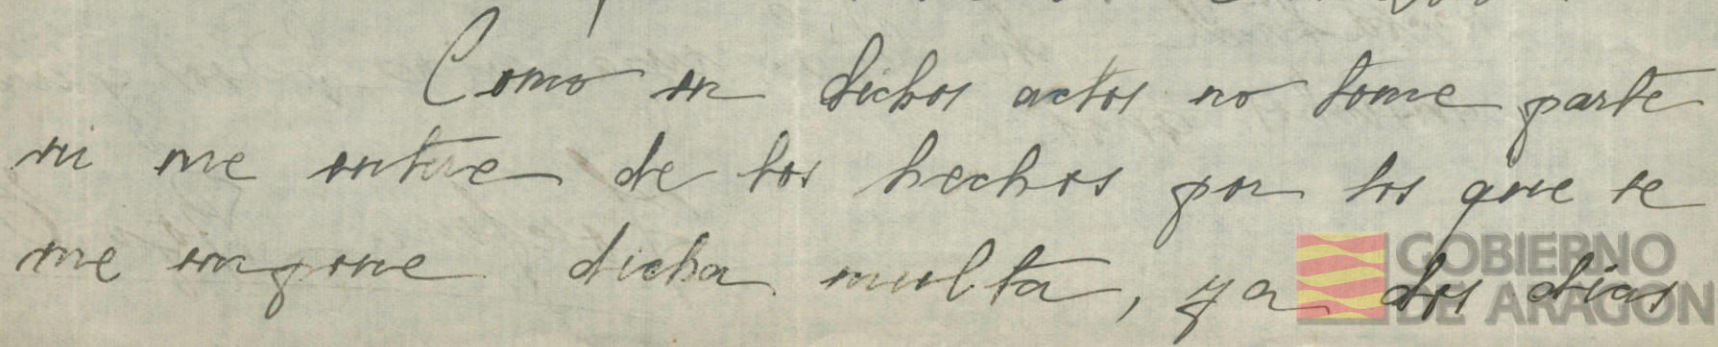 Como en dichos actos no tome parte
ni me entere de los hechos por los que se
me impone dicha multa, ya dos dias
GOBIERNO
DE ARAGON